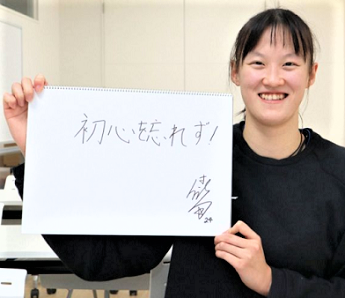 初心を忘れず!
24